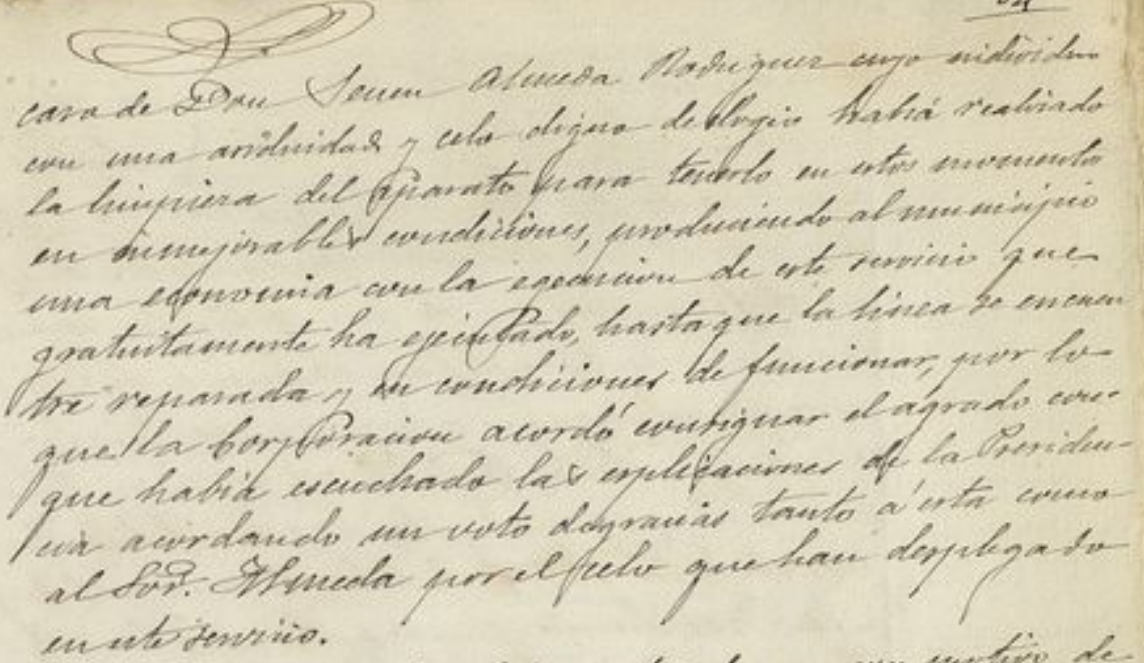 casa de Don Senen Almeda Rodriguez cuyo individuo
con una asiduidad y celo digno de elogio habia realizado
la limpieza del aparato para tenerlo en estos momento
en inmejorables condiciones, produciendo al municipio
una economia con la egecucion de este servicio que
gratuitamente ha ejecutado, hasta que la linea se encuen
tre reparada y en condiciones de funcionar, por lo
que la Corporacion acordó consignar el agrado con
que habia escuchado las esplicaciones de la Presiden-
cia acordando un voto de gracias tanto á esta como
al Sor. Almeda por el celo que han desplegado
en este servicio.
motivo de